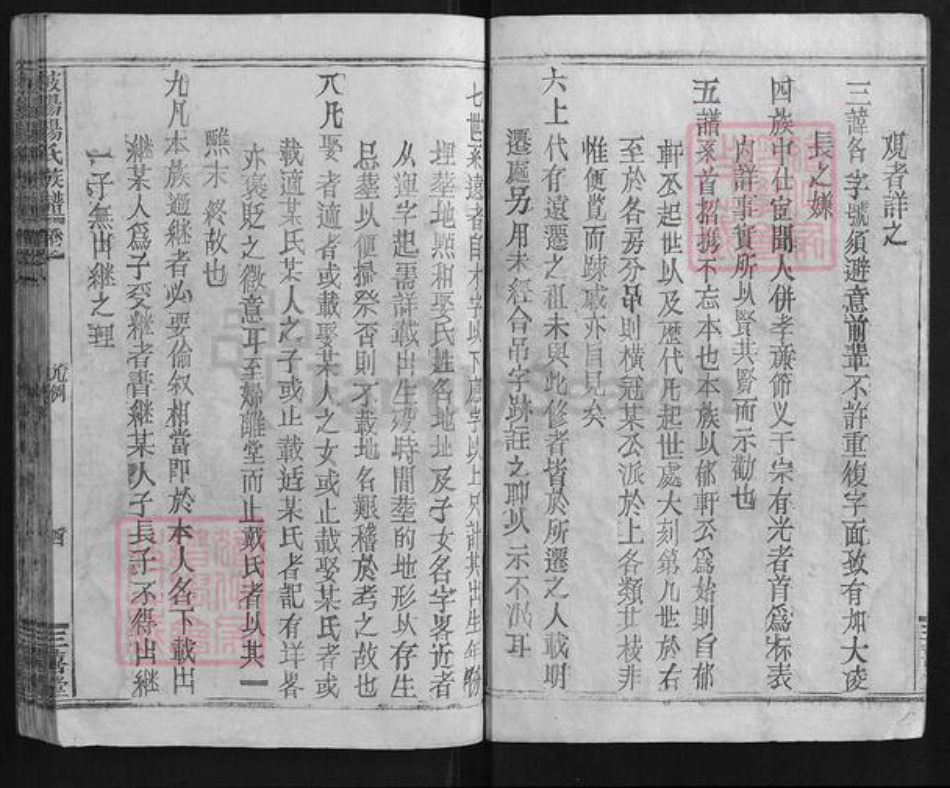 觀者詳之
三諱各字號須避意前輩不許重復字面致有加大凌
長之嫌
四族中仕宦聞人併孝廉節义于宗有光者首爲标表
内詳事實所以賢其賢而示勸也
五譜系首招携不忘本也本族以郁軒公爲始則自郁
軒公起世以及歷代凡起世處大刻第几世於右
至於各房分吊則橫冠某公派於上各類其枝非
惟便覽而踈戚亦自見矣
六上代存遠遷之祖未與此修者皆於所遷之人載明
遷處另用未經合吊字跡註之聊以示不泯耳
七世系遠者自 字以下 字以上只計其出生年
埋塟地㸃和娶氏姓名地址及子女名字畧近者
从 字起需詳載出生殁時間塟的地形以存生
忌塟以便掃祭否則不載地名艱稽於考之故也
八凡娶者適者或載娶某人之女或止載娶某氏者或
載適某氏某人之子或止載适某氏者記有详畧
亦褒貶之微意耳至婦離堂而止載氏者以其一
醮末終故也
九凡本族過継者必要倫叙相當即於本人名下載出
継某人爲子受継者書継某人子長子不得出継
一子無出継之理
陽氏族譜
凡例